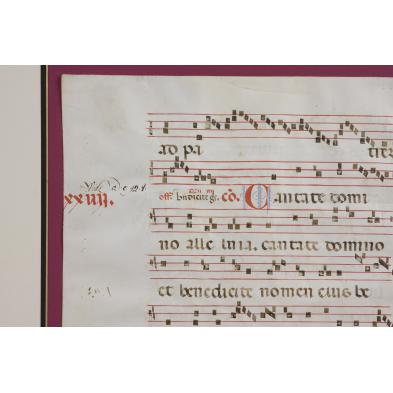 ad pa
xxiiij. offm. cō. Cantate domi
no alle luia. cantate domino
et benedicite nomen eius be